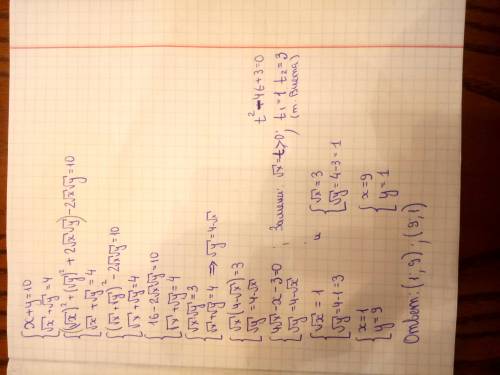 { x+y=10
{ √x+√y=4
{ ((√x)²+(√y)²+2√x√y)-2√x√y=10
{ √x+√y=4
{ (√x+√y)²-2√x√y=10
{ √x+√y=4
{ 16-2√x√y=10
{ √x+√y=4
{ √x√y=3
{ √x+√y=4 ⇒ √y=4-√x
{ √x(4-√x)=3
{ √y=4-√x
{ 4√x-x-3=0 ; Замена: √x=t>0: t²-4t+3=0
{ √y=4-√x ; t₁=1 t₂=3
(т. Виета)
{ √x=1 и { √x=3
{ √y=4-1=3 { √y=4-3=1
{ x=1 { x=9
{ y=9 { y=1
Ответ: (1;9);(9;1)